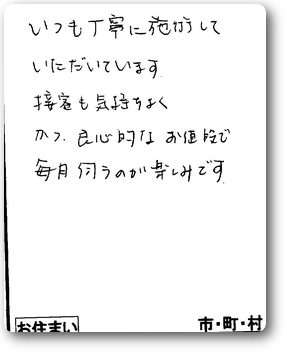 いつも丁寧に施術して
いただいています
接客も気持ちよく
かつ、良心的なお値段で
毎月伺うのが楽しみです
お住まい 市・町・村